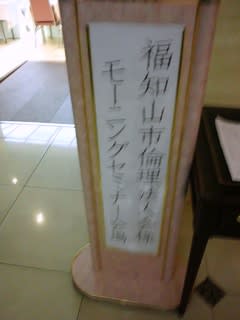 福知山市倫理法人会様
モーニングセミナー会場